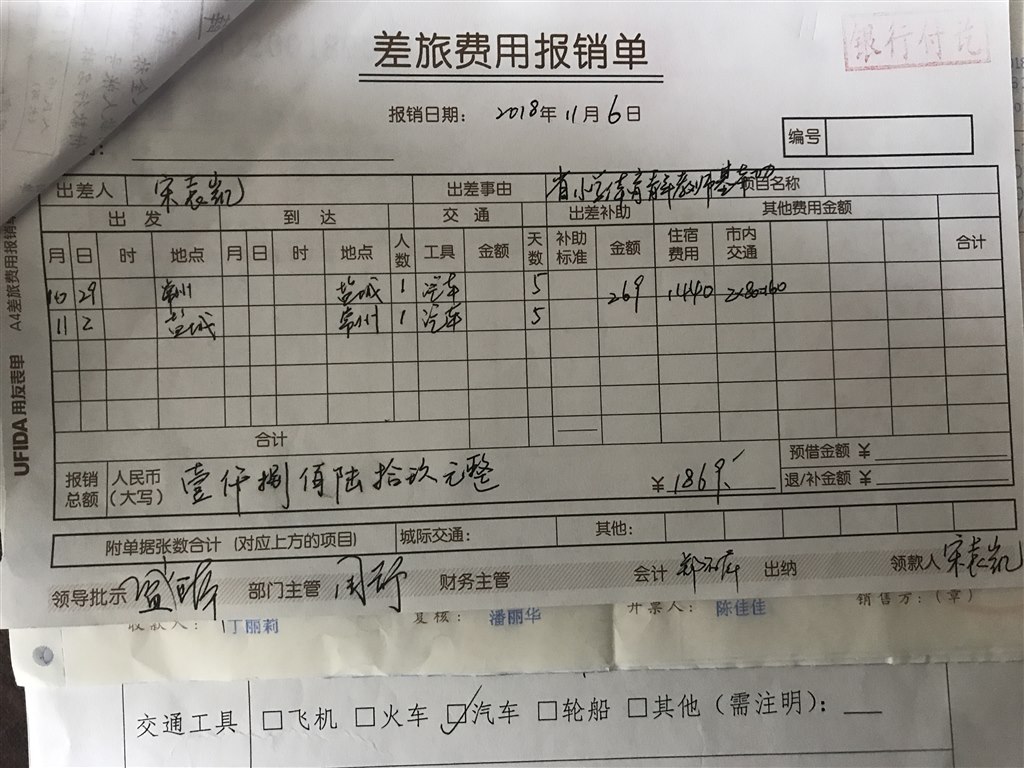 差旅费用报销单
银行付讫
报销日期： 2018年 11月 6日
编号
出差人 宋袁凯 出差事由 省小学体育青年教师基本功 项目名称
出发 到达 交通 出差补助 其他费用金额
月 日 时 地点 月 日 时 地点 人数 工具 金额 天数 补助标准 金额 住宿费用 市内交通 合计
10 29 常州 盐城 1 汽车 5 269 1440 2×80=160
11 2 盐城 常州 1 汽车 5
合计
报销总额 人民币（大写） 壹仟捌佰陆拾玖元整 ¥ 1869.
预借金额 ¥
退/补金额 ¥
附单据张数合计（对应上方的项目） 城际交通： 其他：
领导批示 部门主管 财务主管 会计 出纳 领款人 宋袁凯
收款人： 丁丽莉 复核： 潘丽华 开票人： 陈佳佳 销售方：（章）
交通工具 □飞机 □火车 ☑汽车 □轮船 □其他（需注明）：
UFIDA 用友表单 A4差旅费用报销单